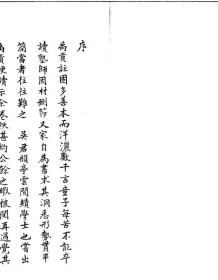 序
禹貢註固多善本而洋灑數千言童子每苦不能卒
讀塾師因材刪節又家自為書求其洞悉形勢貫串
簡當者往往難之 吳君韻亭雲間績學士也嘗出
禹貢便讀示余卷帙甚約公餘之暇披閱再過覺其